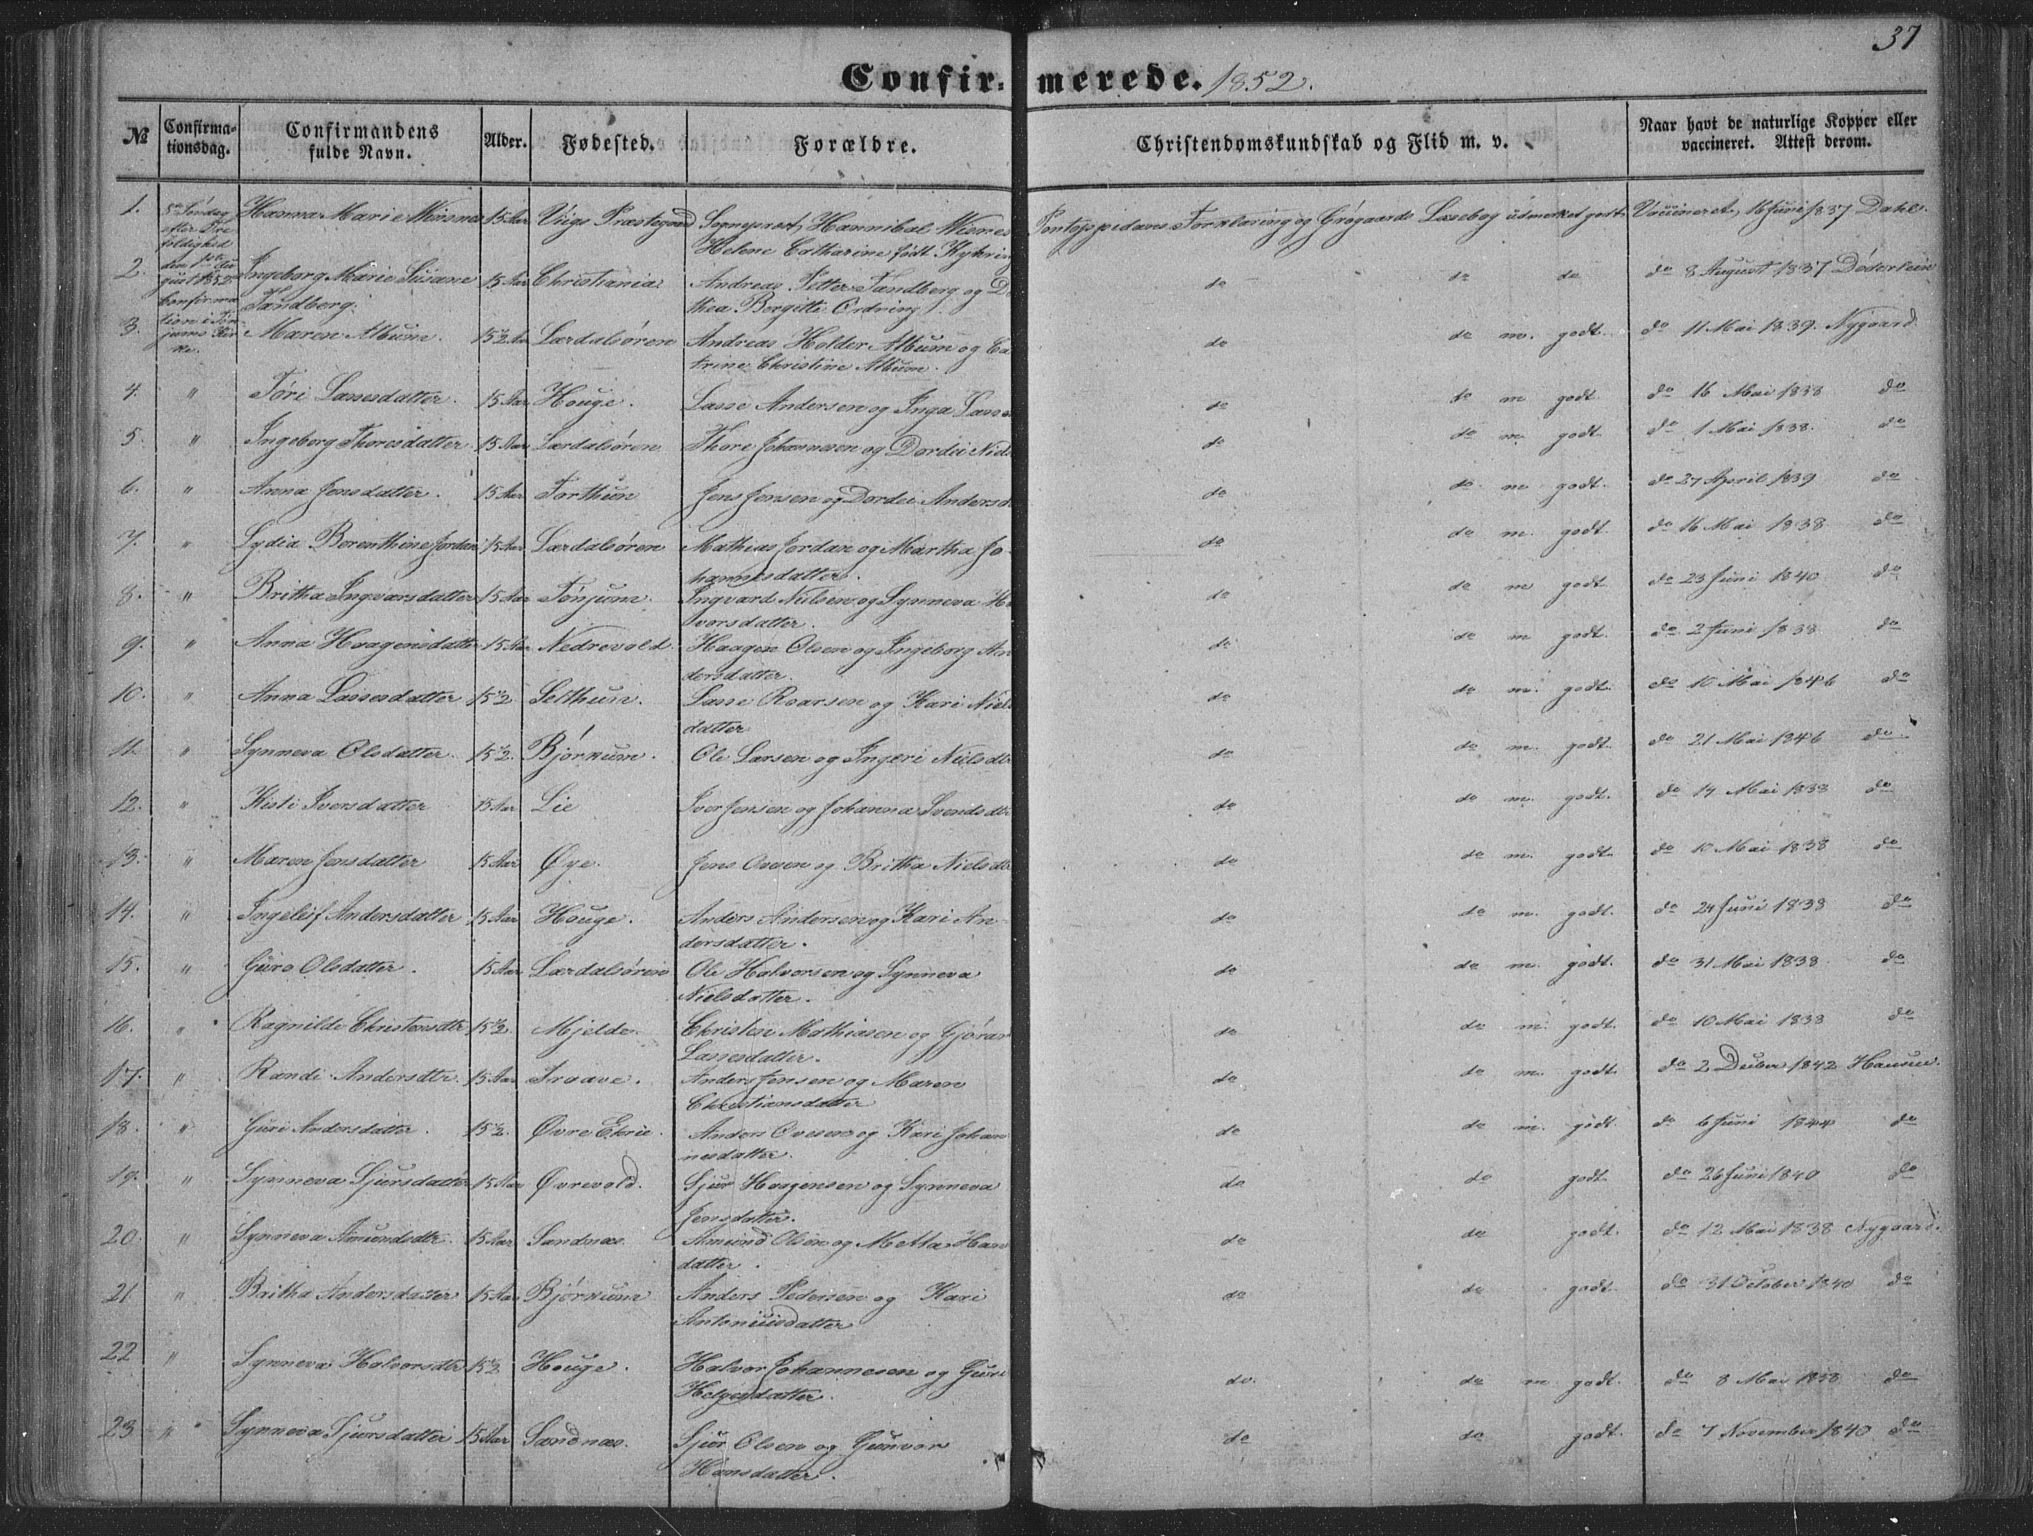 37
Confirmerede. 1852.
№ Confirmationsdag. Confirmandens fulde Navn. Alder. Fødested. Forældre. Christendomskundskab og Flid m. v. Naar havt de naturlige Kopper eller vaccineret. Attest derom.
1. 5te Søndag efter Trefoldighed den 1ste August 1852 Hanna Marie 15 Aar Viigs Præstegaard Sogneprest Hannibal Helene Catharine født Pontoppidans Forklaring og Grøgaards Læsebog udmerket godt. Vaccineret 16 Juni 1837 Dahl.
2. Confirmation i Tønjums Kirke. Ingeborg Marie Susane Sandberg. 15 Aar Christiania Andreas Petter Sandberg og Do thea Birgitte do do do do 8 August 1837 Døderlein
3. Maren Album. 15½ Aar Lærdalsøren Andreas Holder Album og Ca trine Christine Album. do do m. godt. do 11 Mai 1839. Nygaard
4. " Tøri Lassesdatter. 15 Aar Houge. Lasse Andersen og Inga Lasse do do m godt do 16 Mai 1838 do
5. " Ingeborg Thoresdatter. 15 Aar Lærdalsøren Thore Johannesen og Dordei Niels do do m. godt. do 1 Mai 1838. do
6. " Anna Jensdatter. 15 Aar Torthun Jens Jensen og Dordei Andersd do do m godt. do 27 April 1839 do
7. " Lydia Berenthine Jordan 15 Aar Lærdalsøren Mathias Jordan og Martha Jo- hannesdatter. do do m. godt. do 16 Mai 1838 do
8. " Britha Ingvarsdatter 15 Aar Tønjum. Ingvard Nielsen og Synneva H vorsdatter. do do m godt. do 23 Juni 1840 do
9. " Anna Haagensdatter 15 Aar Nedrevold. Haagen Olsen og Ingeborg An dersdatter. do do m godt. do 2 Juni 1838 do
10. " Anna Lassesdatter 15½ Selthun. Lasse Roarsen og Kari Niels datter do do m. godt. do 10 Mai 1846 do
11. " Synneva Olsdatter. 15½. Bjørkum. Ole Larsen og Ingeri Nielsdtr do do m. godt. do 21 Mai 1846 do
12. " Kisti Iversdatter 15 Aar Lie Iver Jensen og Johanna Svendsdtr do do m. godt. do 14 Mai 1838 do
13. " Maren Jensdatter 15 Aar Øye. Jens Ovesen og Britha Nielsdtr do do m. godt. do 10 Mai 1838 do
14. " Ingeleif Andersdatter 15 Aar Houge. Anders Andersen og Kari An- dersdatter. do do m. godt. do 24 Juni 1838 do
15. " Guro Olsdatter. 15 Aar Lærdalsøren Ole Halvorsen og Synneva Nielsdatter. do do m. godt. do 31 Mai 1838. do
16. " Ragnilde Christensdtr 15½ Mjelde. Christen Mathiasen og Gjøran Lassesdatter. do do m. godt. do 10 Mai 1838 do
17. " Randi Andersdtr. 15 Aar Traave. Anders Jensen og Maren Christiansdatter do do m. godt. do 2 Decber 1842 Hansen.
18. " Guri Andersdatter. 15½. Øvre Ekrie. Anders Ovesen og Kari Johan nesdatter. do do m. godt. do 6 Juni 1844 do
19. " Synneva Sjursdatter 15 Aar Øvrevold. Sjur Haagensen og Synneva Jensdatter. do do godt. do 26 Juni 1840 do
20. " Synneva Amundsdtr. 15 Aar Sandnæs. Amund Olsen og Metta Hans datter. do do godt. do 12 Mai 1838 Nygaard.
21 " Britha Andersdatter 15 Aar Bjørkum Anders Pedersen og Kari Antoniusdatter do do godt. do 31 October 1840 do
22 " Synneva Halvorsdtr 15½ Houge. Halvor Johannesen og Guri Helgesdatter. do. do m godt. do 8 Mai 1838 do
23 " Synneva Sjursdatter 15 Aar Sandnæs. Sjur Olsen og Gunvor Hansdatter. do do godt. do 7 November 1840 do